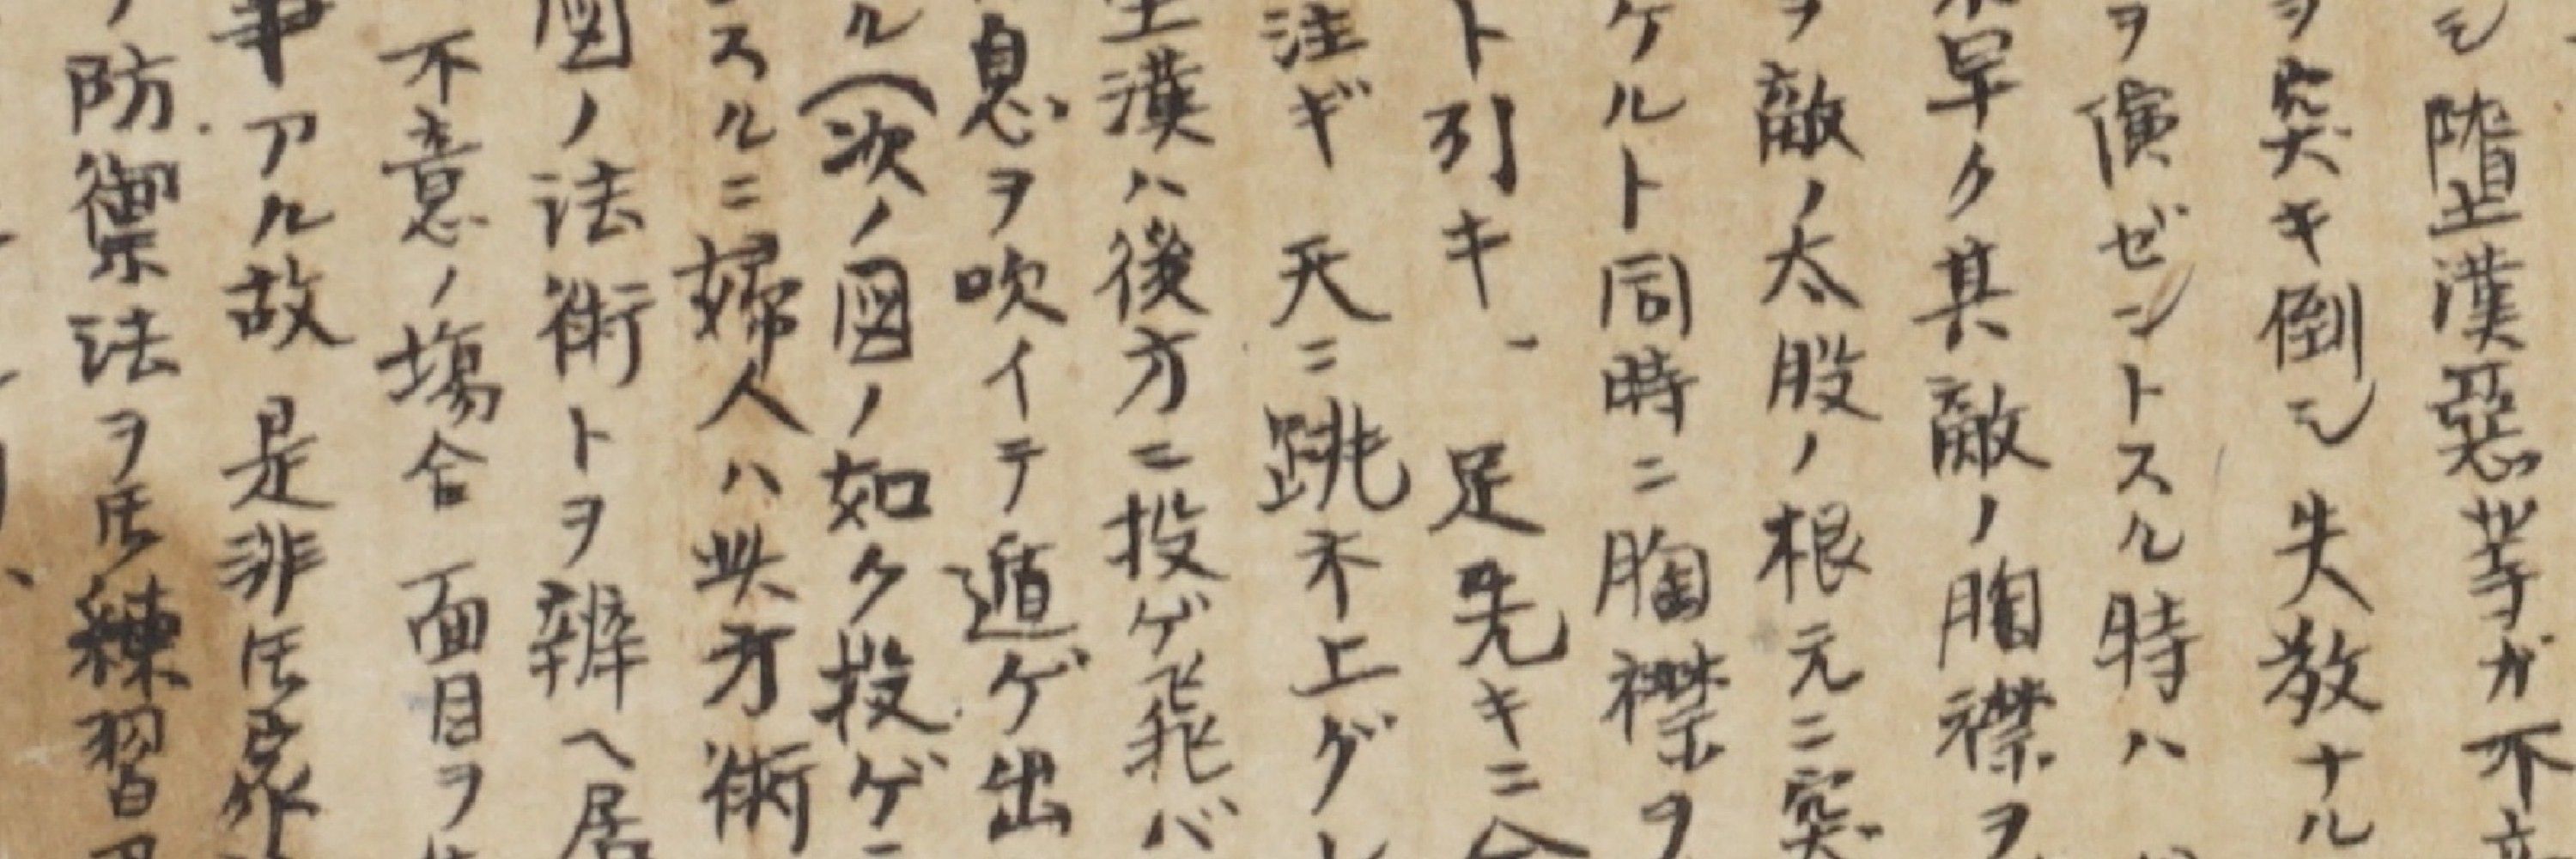 シ堕漢惡等ガ不意
ヲ突キ倒シ失敬ナル
ヲ演ゼントスル時ハ
早ク其敵ノ胸襟ヲ
ヲ敵ノ太股ノ根元ニ突
ケルト同時ニ胸襟ヲ
ト引キ、足先キニ
注ギ天ニ跳ネ上グレ
漢ハ後方ニ投ゲ飛バ
息ヲ吹イテ遁ゲ出
ル(次ノ図ノ如ク投ゲニ
スルニ婦人ハ此才術
図ノ法術トヲ辨ヘ居
不意ノ場合面目ヲ
事アル故是非トモ
ノ防禦法ヲモ練習